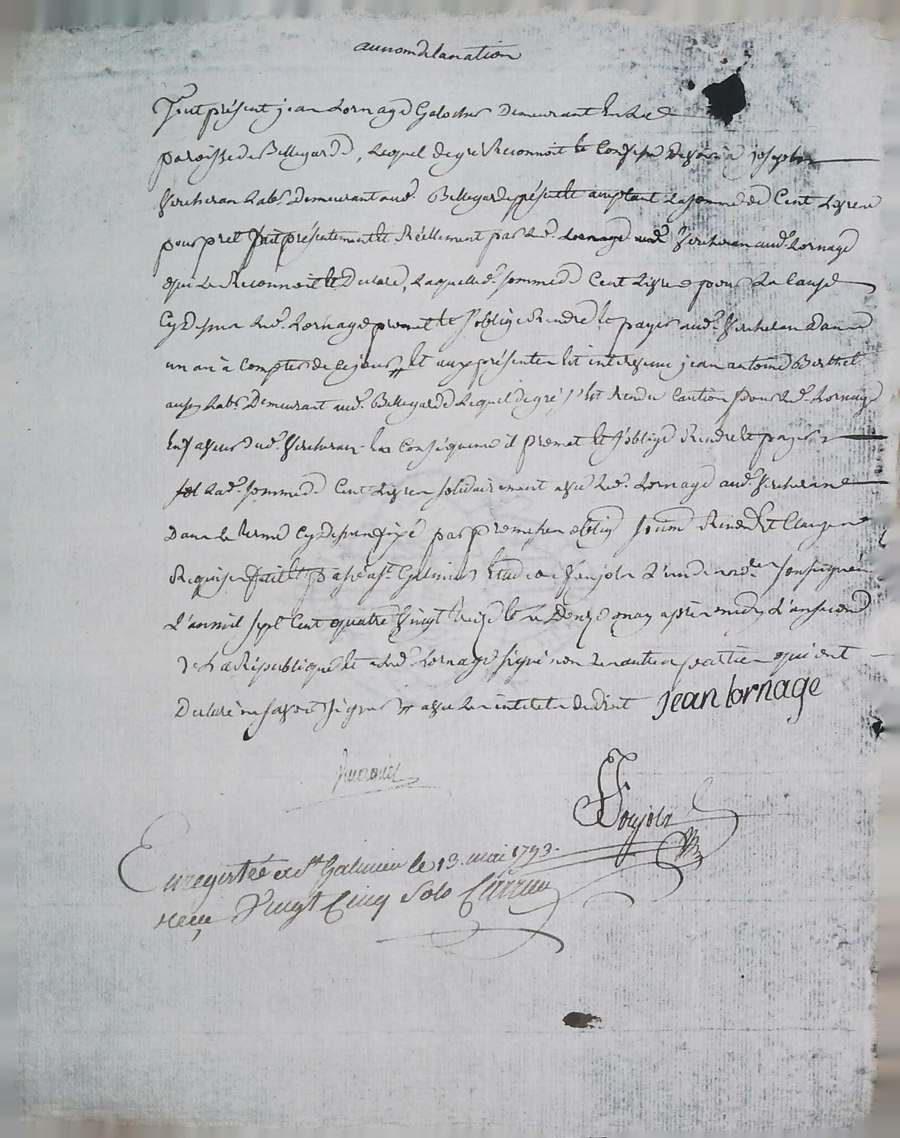 au nom de la nation
Fut présent jean Lornage Galocher Demeurant En La de
paroisse de Bellegarde, Lequel de gré Reconnoit Et Confesse devoir a joseph
Vercheran Lab.r Demeurant aud. Bellegarde présent Et aceptant La somme de Cent Livres
pour pret fait présentement Et Réellement par led. Lornage aud. Vercheran aud. Lornage
qui Le Reconnoit Et Declare, Laquelle d. somme de Cent Livres pour La Cause
Cy Dessus Led. Lornage promet Et s'oblige Rendre Et payer aud. Vercheran Dans
un an à Compter de Ce jour, Et aux présentes Est intervenu jean antoine Berthet
aussy Lab.r Demeurant aud. Bellegarde Lequel de gré s'Est Rendu Caution pour Led. Lornage
En faveur dud. Vercheran En Conséquence il promet Et s'oblige Rendre Et payer
Lad. somme de Cent Livres solidairement avec Led. Lornage aud. Vercheran
Dans Le terme Cy Dessus fixé par promesse oblig soum Renon Et Clauses
Requises fait Et passé a S.t Galmier Etude de Veujoln L'un de nous no.res soussignés
L'an mil sept Cent quatre Vingt treize Et Le Douze may après midy L'an second
De La République Et a Led. Lornage signé non Les autres parties qui ont
Declaré ne savoir signer avec Les interets de droit jean lornage
Enregistré a S.t Galmier le 13. mai 1793.
reçu Vingt Cinq Sols